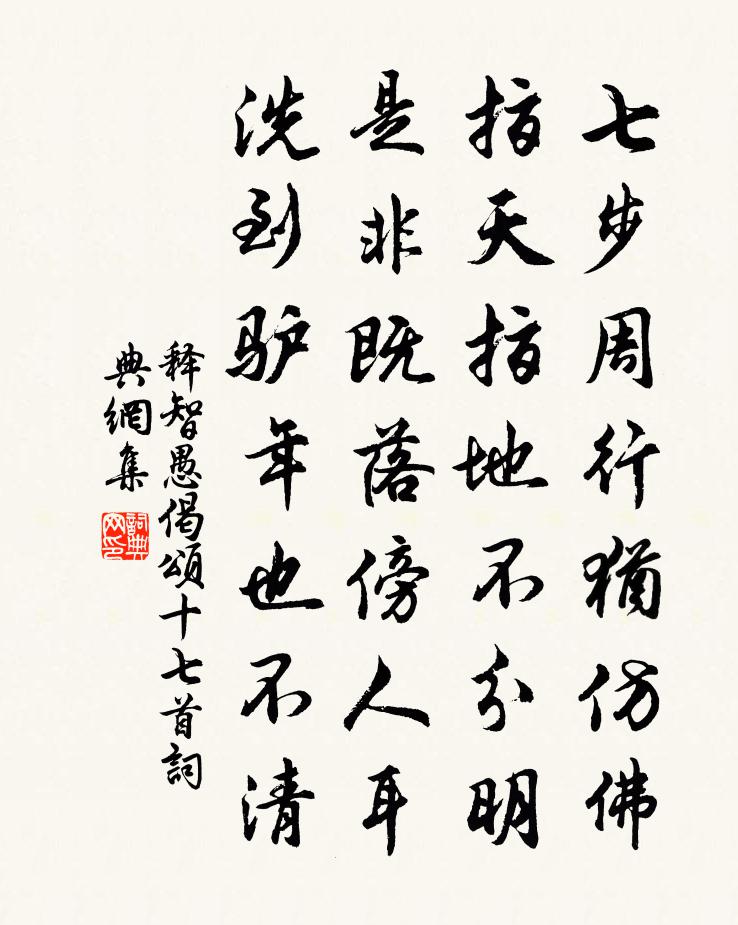 七步周行犹仿佛
指天指地不分明
是非既落傍人耳
洗到驴年也不清
释智愚偈頌十七首詞
典網集
詞典
网印